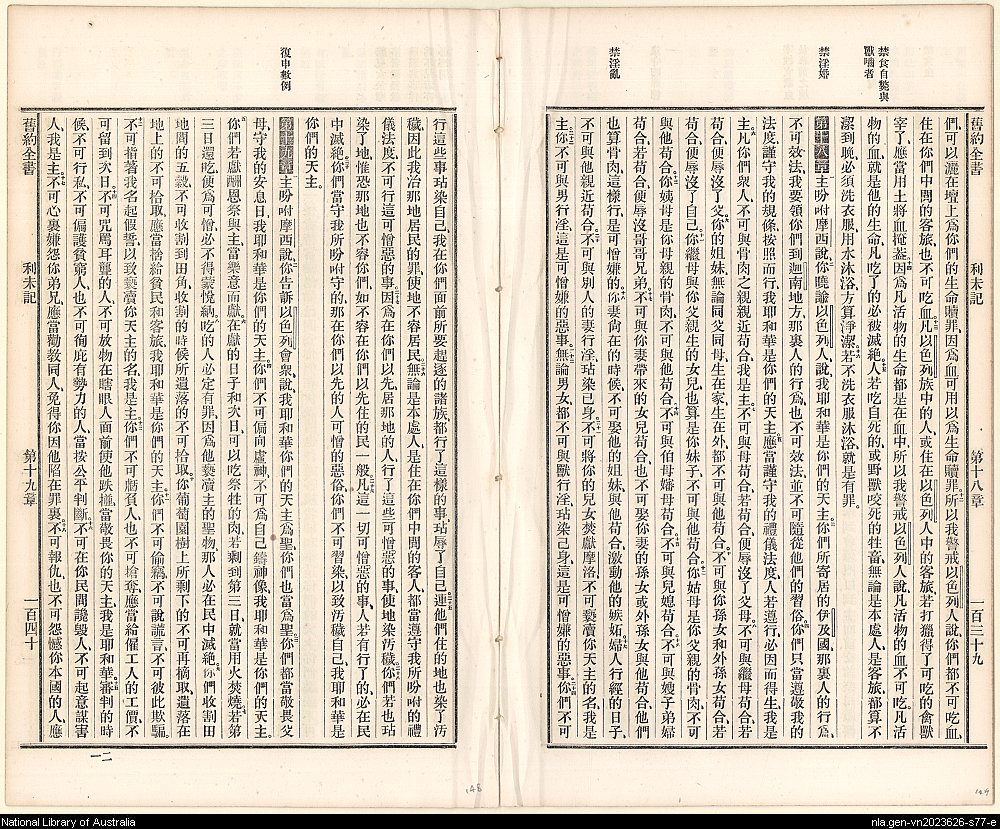 舊約全書
利未記
第十八章
一百三十九
禁食自斃與
獸嚙者
禁淫婚
禁淫亂
們可以灑在壇上爲你們的生命贖罪因爲血可用以爲生命贖罪所以我警戒以色列人說你們都不可吃血
住在你們中間的客旅也不可吃血凡以色列族中的人或住在以色列人中的客旅若打獵得了可吃的禽獸
宰了應當用土將血掩蓋因爲凡活物的生命都是在血中所以我警戒以色列人說凡活物的血不可吃凡活
物的血就是他的生命凡吃了的必被滅絕人若吃自死的或野獸咬死的牲畜無論是本處人是客旅都算不
潔到晚必須洗衣服用水沐浴方算淨潔若不洗衣服沐浴就是有罪
第十八章主吩咐摩西說你曉諭以色列人說我耶和華是你們的天主你們所寄居的伊及國那裏人的行爲
不可效法我要領你們到迦南地方那裏人的行爲也不可效法並不可隨從他們的習俗你們只當遵敬我的
法度謹守我的規條按照而行我耶和華是你們的天主應當謹守我的禮儀法度人若遵行必因而得生我是
主凡你們衆人不可與骨肉之親親近苟合我是主不可與母苟合便辱沒了父母不可與繼母苟合若
苟合便辱沒了父你的姐妹無論同父同母生在家生在外都不可與他苟合不可與你孫女和外孫女苟合若
苟合便辱沒了自己你繼母與你父親生的女兒也算是你妹子不可與他苟合你姑母是你父親的骨肉不可
與他苟合你姨母是你母親的骨肉不可與他苟合不可與伯母嬸母苟合不可與兒媳苟合不可與嫂子弟婦
苟合若苟合便辱沒哥哥兄弟不可與你妻帶來的女兒苟合也不可娶你妻的孫女或外孫女與他苟合他們
也算骨肉這樣行是可憎嫌的你妻尚在的時候不可娶他的姐妹與他苟合激動他的嫉妬婦人行經的日子
不可與他親近苟合不可與別人的妻行淫玷染己身不可將你的兒女焚獻摩洛不可褻瀆你天主的名我是
主你不可與男行淫這是可憎嫌的惡事無論男女都不可與獸行淫玷染己身這是可憎嫌的惡事你們不可
復申數例
行這些事玷染自己我在你們面前所要趕逐的諸族都行了這樣的事玷辱了自己連他們住的地也染了汚
穢因此我治那地居民的罪使地不容居民無論是本處人是住在你們中間的客人都當遵守我所吩咐的禮
儀法度不可行這可憎惡的事因爲在你們以先居那地的人行了這些可憎惡的事使地染汚穢你們若也玷
染了地惟恐那地也不容你們如不容在你們以先住的民一般凡這一切可憎惡的事人若有行了的必在民
中滅絕你們當守我所吩咐守的那在你們以先的人可憎的惡俗你們不可習染以致汚穢自己我耶和華是
你們的天主
第十九章主吩咐摩西說你告訴以色列會衆說我耶和華你們的天主爲聖你們也當爲聖你們都當敬畏父
母守我的安息日我耶和華是你們的天主你們不可偏向虛神不可爲自己鑄神像我耶和華是你們的天主
你們若獻酬恩祭與主當樂意而獻在獻的日子和次日可以吃祭牲的肉若剩到第三日就當用火焚燒若第
三日還吃便爲可憎必不得蒙悅納吃的人必定有罪因爲他褻瀆主的聖物那人必在民中滅絕你們收割田
地間的五穀不可收割到田角收割的時候所遺落的不可拾取你葡萄園樹上所剩下的不可再摘取遺落在
地上的不可拾取應當捨給貧民和客旅我耶和華是你們的天主你們不可偷竊不可說謊言不可彼此欺騙
不可指著我名起假誓以致褻瀆你天主的名我是主你們不可虧負人也不可搶奪應當給僱工人的工價不
可留到次日不可咒罵耳聾的人不可放物在瞎眼人面前使他跌撞當敬畏你的天主我是耶和華審判的時
候不可行私不可偏護貧窮人也不可徇庇有勢力的人當按公平判斷不可在你民間讒毀人不可起意謀害
人我是主不可心裏嫌怨你弟兄應當勸敎同人免得你因他陷在罪裏不可報仇也不可怨憾你本國的人應
舊約全書
利未記
第十九章
一百四十
二一
148
149
National Library of Australia
nla.gen-vn2023626-s77-e